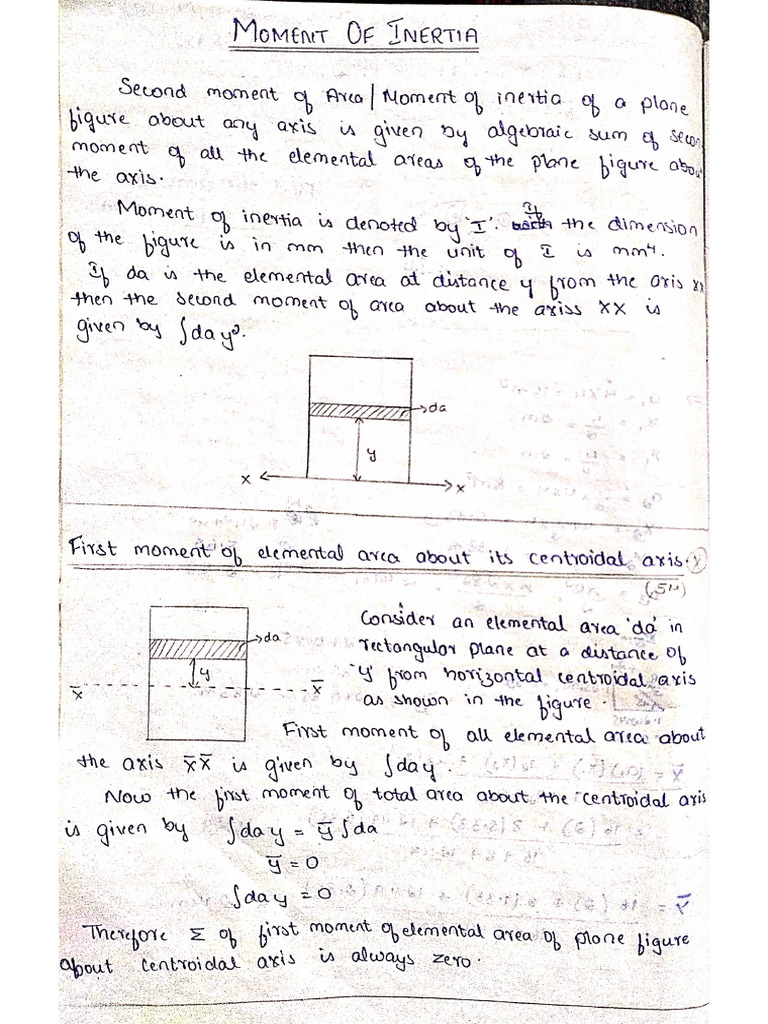 MOMENT OF INERTIA
Second moment of Area / Moment of inertia of a plane
figure about any axis is given by algebraic sum of secon
moment of all the elemental areas of the plane figure abou
the axis.
Moment of inertia is denoted by 'I'. If the dimension
of the figure is in mm then the unit of I is mm⁴.
If da is the elemental area at distance y from the axis xx
then the second moment of area about the axiss XX is
given by ∫da y².
da
y
x x
First moment of elemental area about its centroidal axis.
(5M)
da
y
x̄ x̄
Consider an elemental area 'da' in
rectangular plane at a distance of
'y' from horizontal centroidal axis
as shown in the figure.
First moment of all elemental area about
the axis x̄x̄ is given by ∫day.
Now the first moment of total area about the centroidal axis
is given by ∫day = ȳ∫da
ȳ = 0
∫day = 0
Therefore Σ of first moment of elemental area of plane figure
about centroidal axis is always zero.